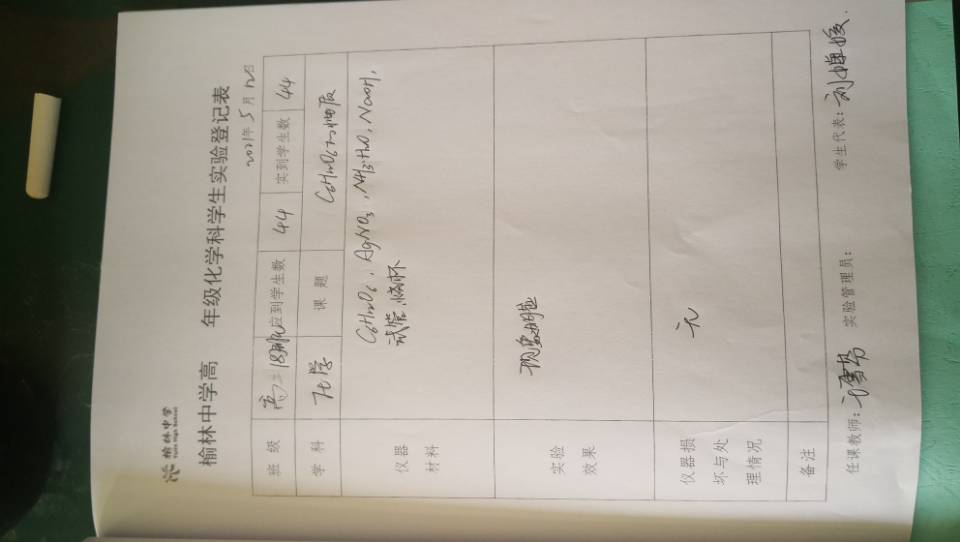 榆林中学
Yulin High School
榆林中学高 年级化学科学生实验登记表
2021年 5 月 12 日
班 级 高二18 应到学生数 44 实到学生数 44
学 科 化学 课 题 C6H12O6的性质
仪器 材料 C6H12O6、AgNO3、NH3·H2O、NaOH、
试管、烧杯
实验 效果 现象明显
仪器损 坏与处 理情况 无
备注
任课教师: 实验管理员: 学生代表: 刘